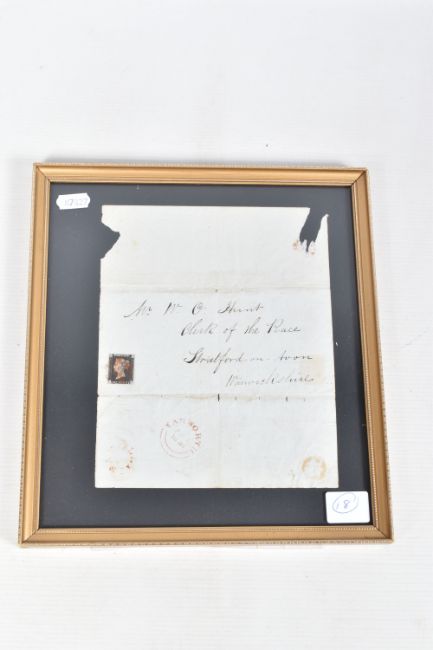 Mr W. O. Hunt
Clerk of the Peace
Stratford on Avon
Warwickshire
TAMWORTH
18